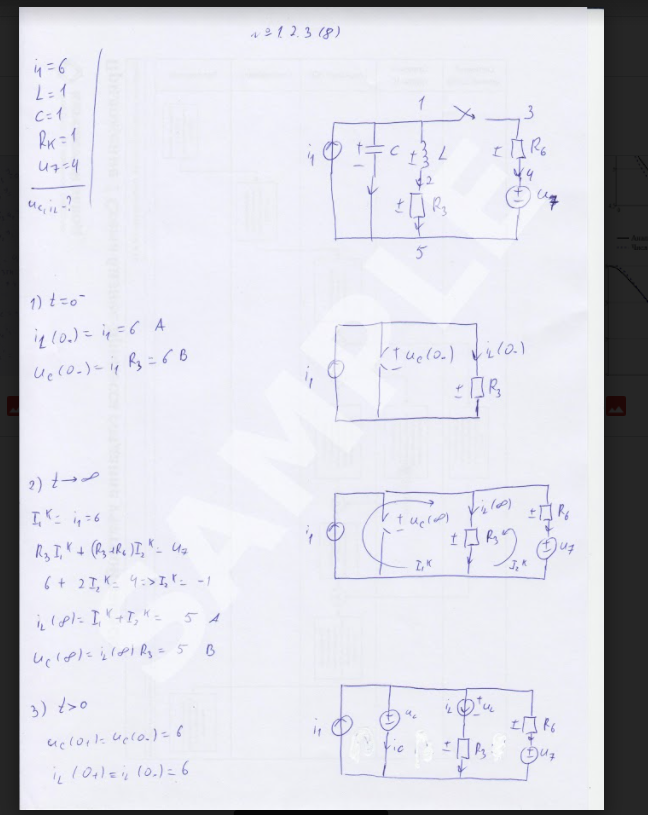 № 1.2.3 (8)
i₁=6
L=1
C=1
Rₖ=1
u₇=4
u_C, i_L -?
1
3
i₁
+
-
C
± L
± R₆
2
4
± R₃
u₇
5
1) t=0⁻
i_L(0₋) = i₁ = 6 A
u_C(0₋) = i₁ R₃ = 6 В
i₁
+ u_C(0₋)
-
i_L(0₋)
± R₃
2) t→∞
I₁ᴷ = i₁ = 6
R₃I₁ᴷ + (R₃+R₆)I₂ᴷ = u₇
6 + 2I₂ᴷ = 4 => I₂ᴷ = -1
i_L(∞) = I₁ᴷ + I₂ᴷ = 5 А
u_C(∞) = i_L(∞) R₃ = 5 В
i₁
+ u_C(∞)
-
i_L(∞)
± R₃
± R₆
u₇
I₁ᴷ
I₂ᴷ
3) t>0
u_C(0₊) = u_C(0₋) = 6
i_L(0₊) = i_L(0₋) = 6
i₁
u_C
i_C
i_L
+ u_L
-
± R₃
± R₆
u₇
SAMPLE